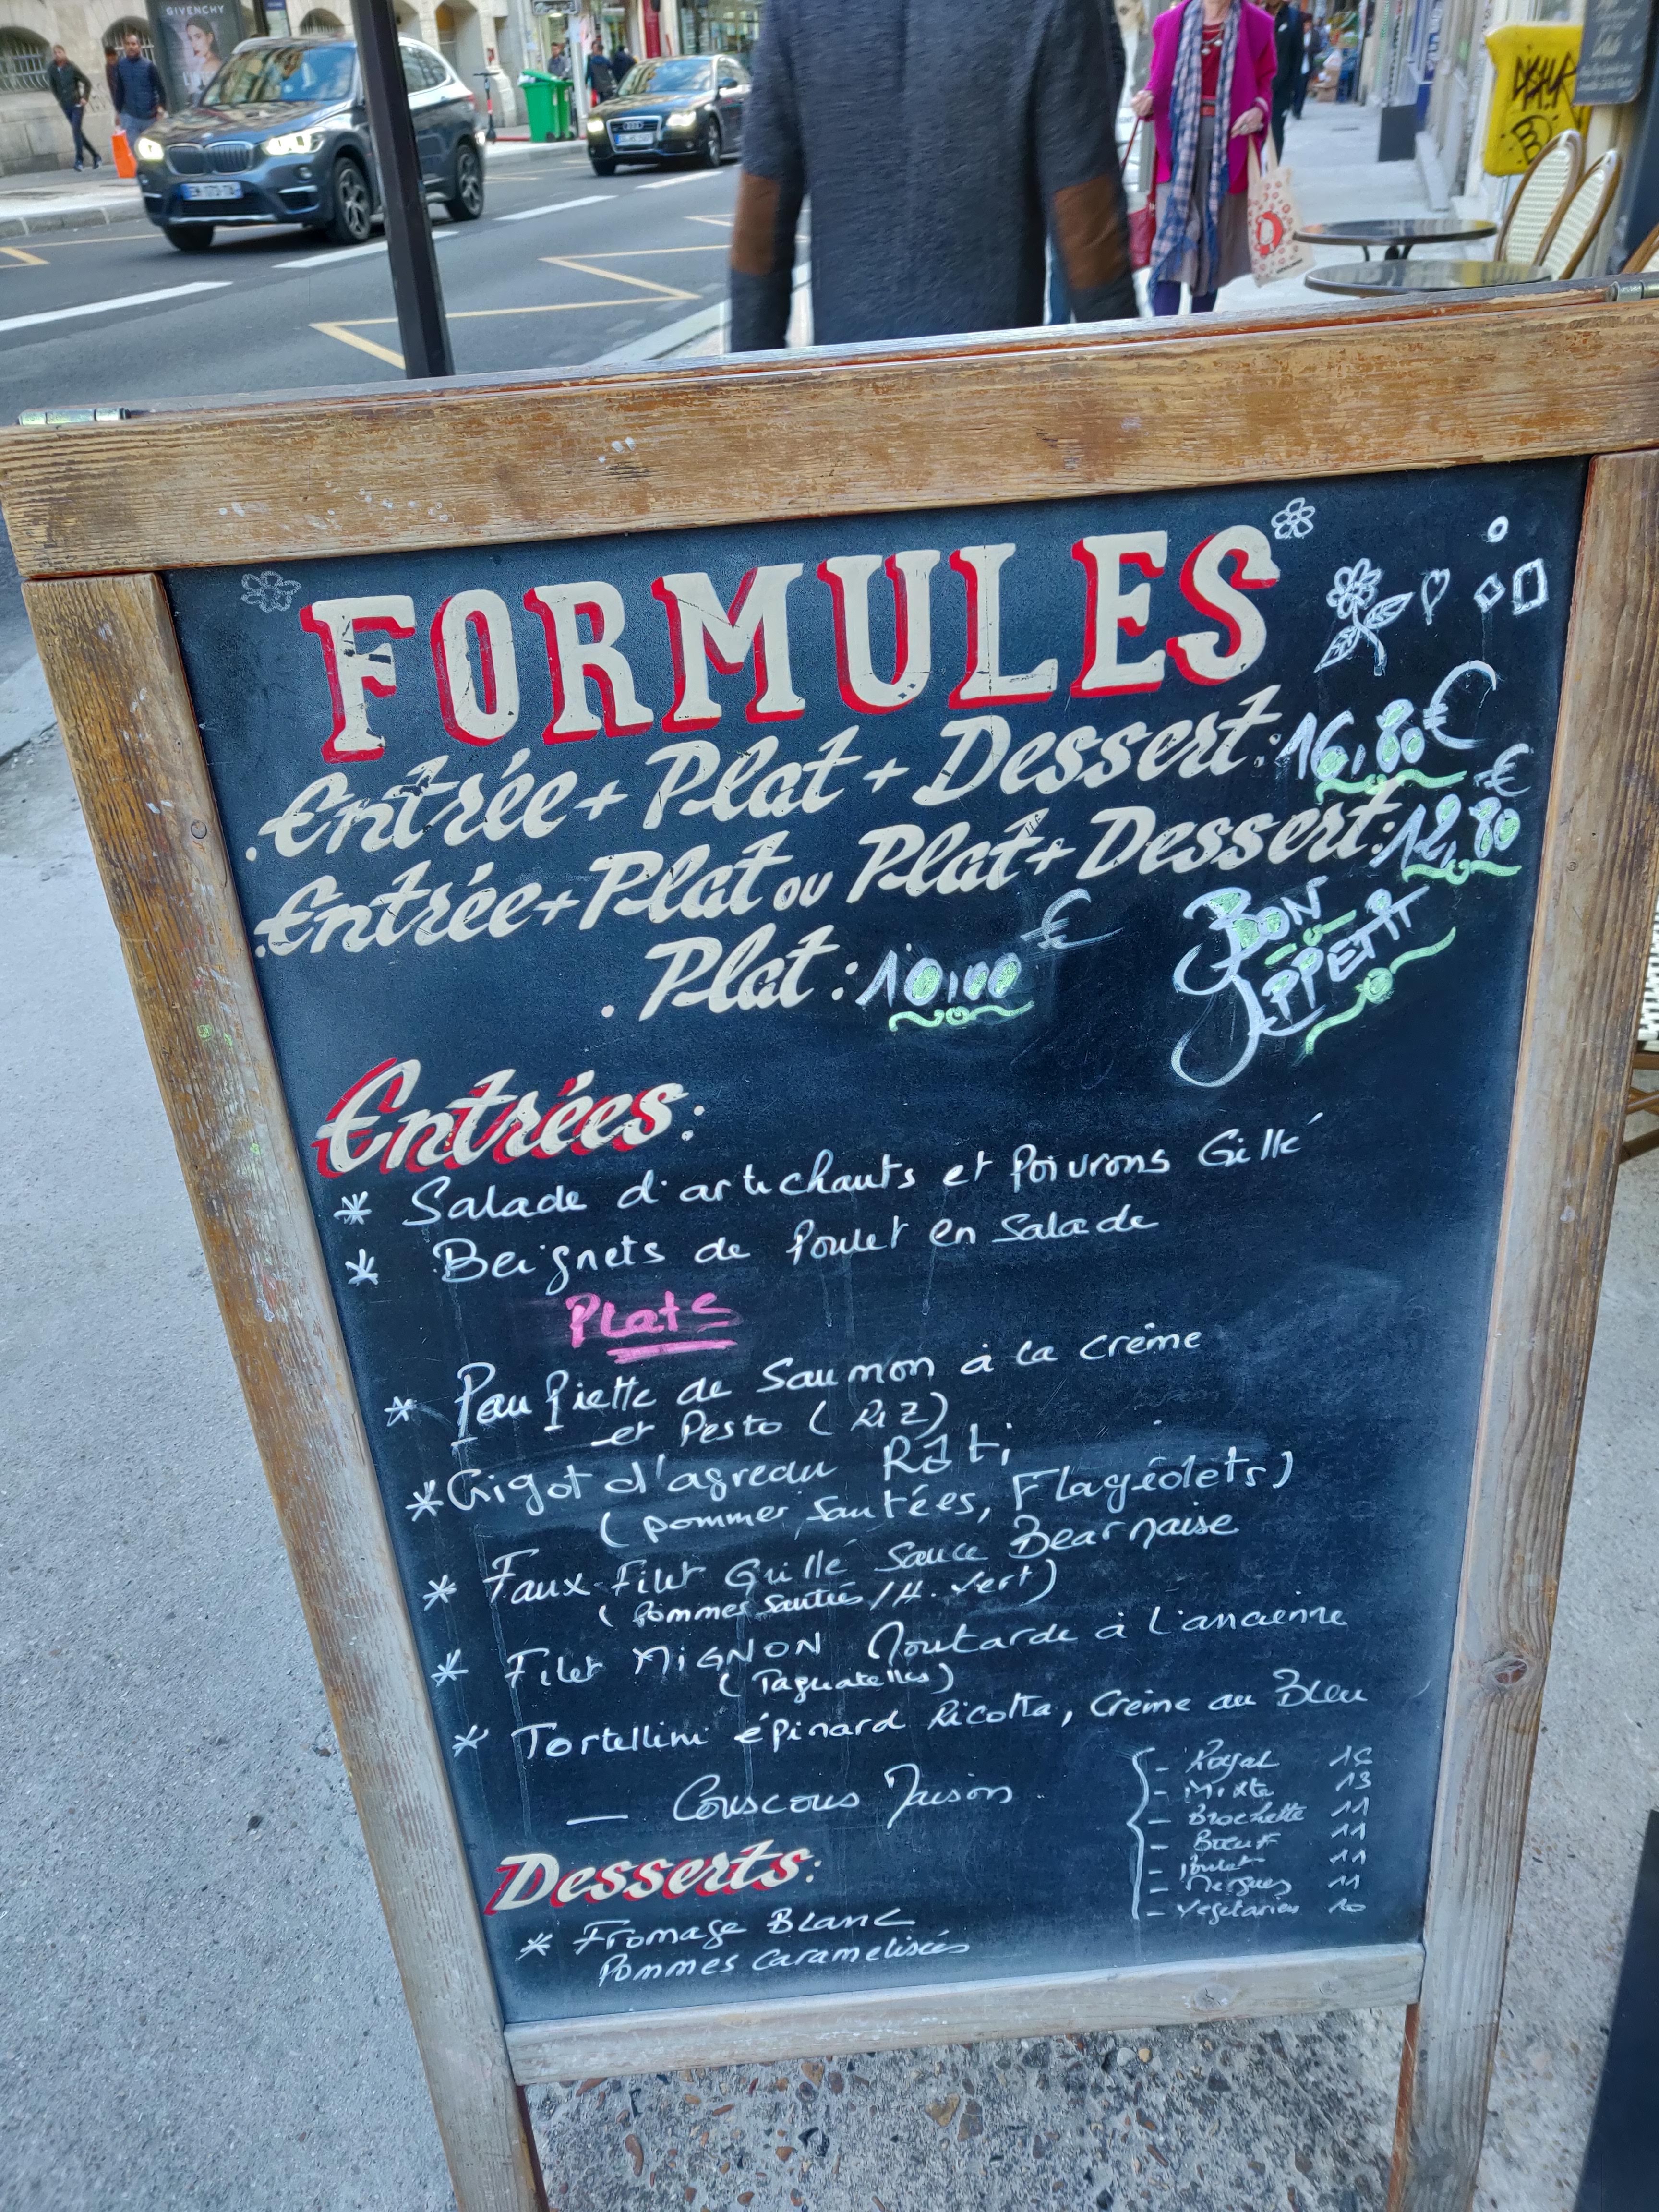 GIVENCHY
FORMULES
. Entrée + Plat + Dessert : 16,80€
. Entrée + Plat ou Plat + Dessert : 12,80€
. Plat : 10,00€
BON
APPETIT
Entrées :
* Salade d'artichauts et Poivrons Grillé
* Beignets de Poulet en Salade
Plats
* Paupiette de Saumon à la crème
et Pesto ( Riz )
* Gigot d'agneau Rôti
( pommes sautées, Flagéolets )
* Faux-Filet Grillé Sauce Bearnaise
( Pommes Sautées / H. Vert )
* Filet MIGNON Moutarde à L'ancienne
( Tagliatelles )
* Tortellini épinard Ricotta, Crème au Bleu
— Couscous Maison
- Royal 15
- Mixte 13
- Brochette 11
- Bœuf 11
- Poulet 11
- Mergues 11
- Végétarien 10
Desserts :
* Fromage Blanc
Pommes caramelisées